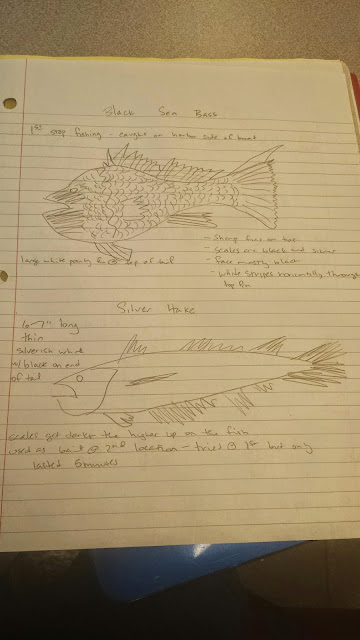 Black Sea Bass
1st stop fishing - caught on harbor side of boat
- Sharp fins on top
- scales are black and silver
- face mostly black
- white stripes horizontally through
top fin
large white pointy fin @ top of tail
Silver Hake
6-7" long
thin
silverish white
w/ black on end
of tail
scales get darker the higher up on the fish
used as bait @ 2nd location - tried @ 1st but only
lasted 5 minutes